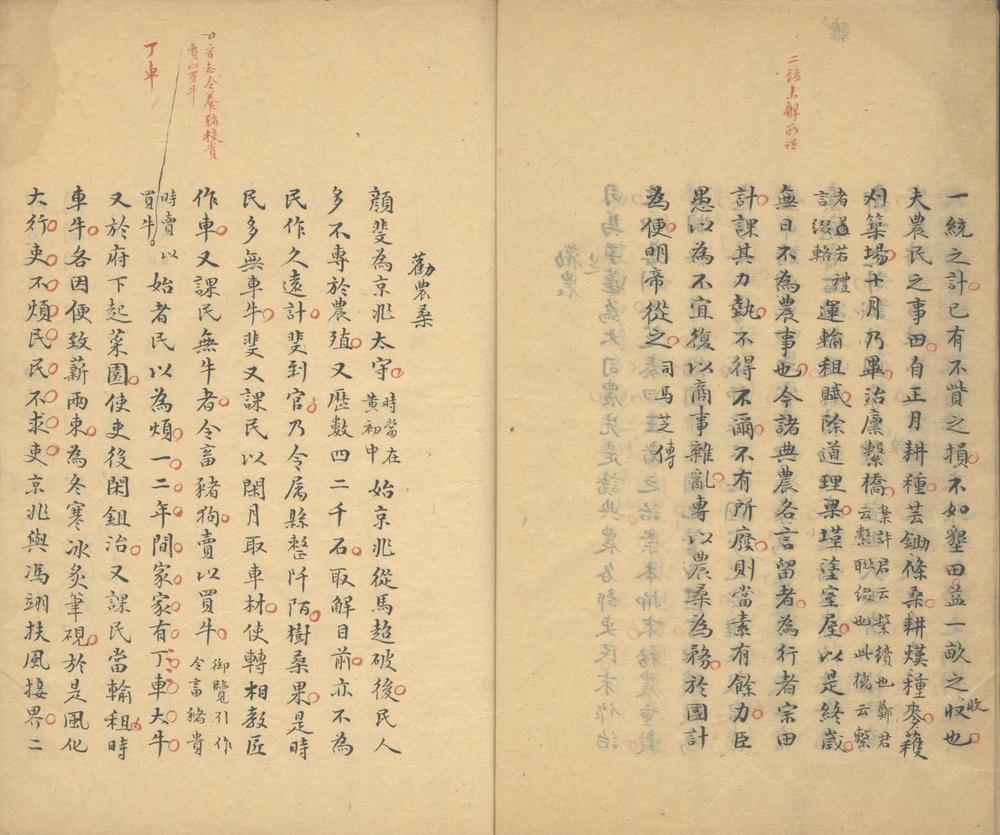 二語未解所謂
一統之計已有不貲之損不如墾田益一畝之收也
收
夫農民之事田自正月耕種芸鋤條桑耕熯種麥穫
刈築場十月乃畢治廩繫橋案許君云繫續也鄭君云繫聯綴也此橋云繫
者道若禮言綴輅運輸租賦除道理梁墐塗室屋以是終歲
無日不為農事也今諸典農各言留者為行者宗田
計課其力埶不得不爾不有所廢則當素有餘力臣
愚以為不宜復以商事雜亂專以農桑為務於國計
為便明帝從之司馬芝傳
勸農桑
顏斐為京兆太守時當在黃初中始京兆從馬超破後民人
多不專於農殖又歷數四二千石取解目前亦不為
民作久遠計斐到官乃令属縣整阡陌樹桑果是時
民多無車牛斐又課民以閑月取車材使轉相教匠
作車又課民無牛者令畜豬狗賣以買牛御覽引作令畜豬貴
時賣買牛以始者民以為煩一二年間家家有丁車大牛
又於府下起菜園使吏後閑鉏治又課民當輸租時
車牛各因便致薪兩束為冬寒冰炙筆硯於是風化
大行吏不煩民民不求吏京兆與馮翊扶風接界二
晉志令養豬投貴賣以買牛
丁車